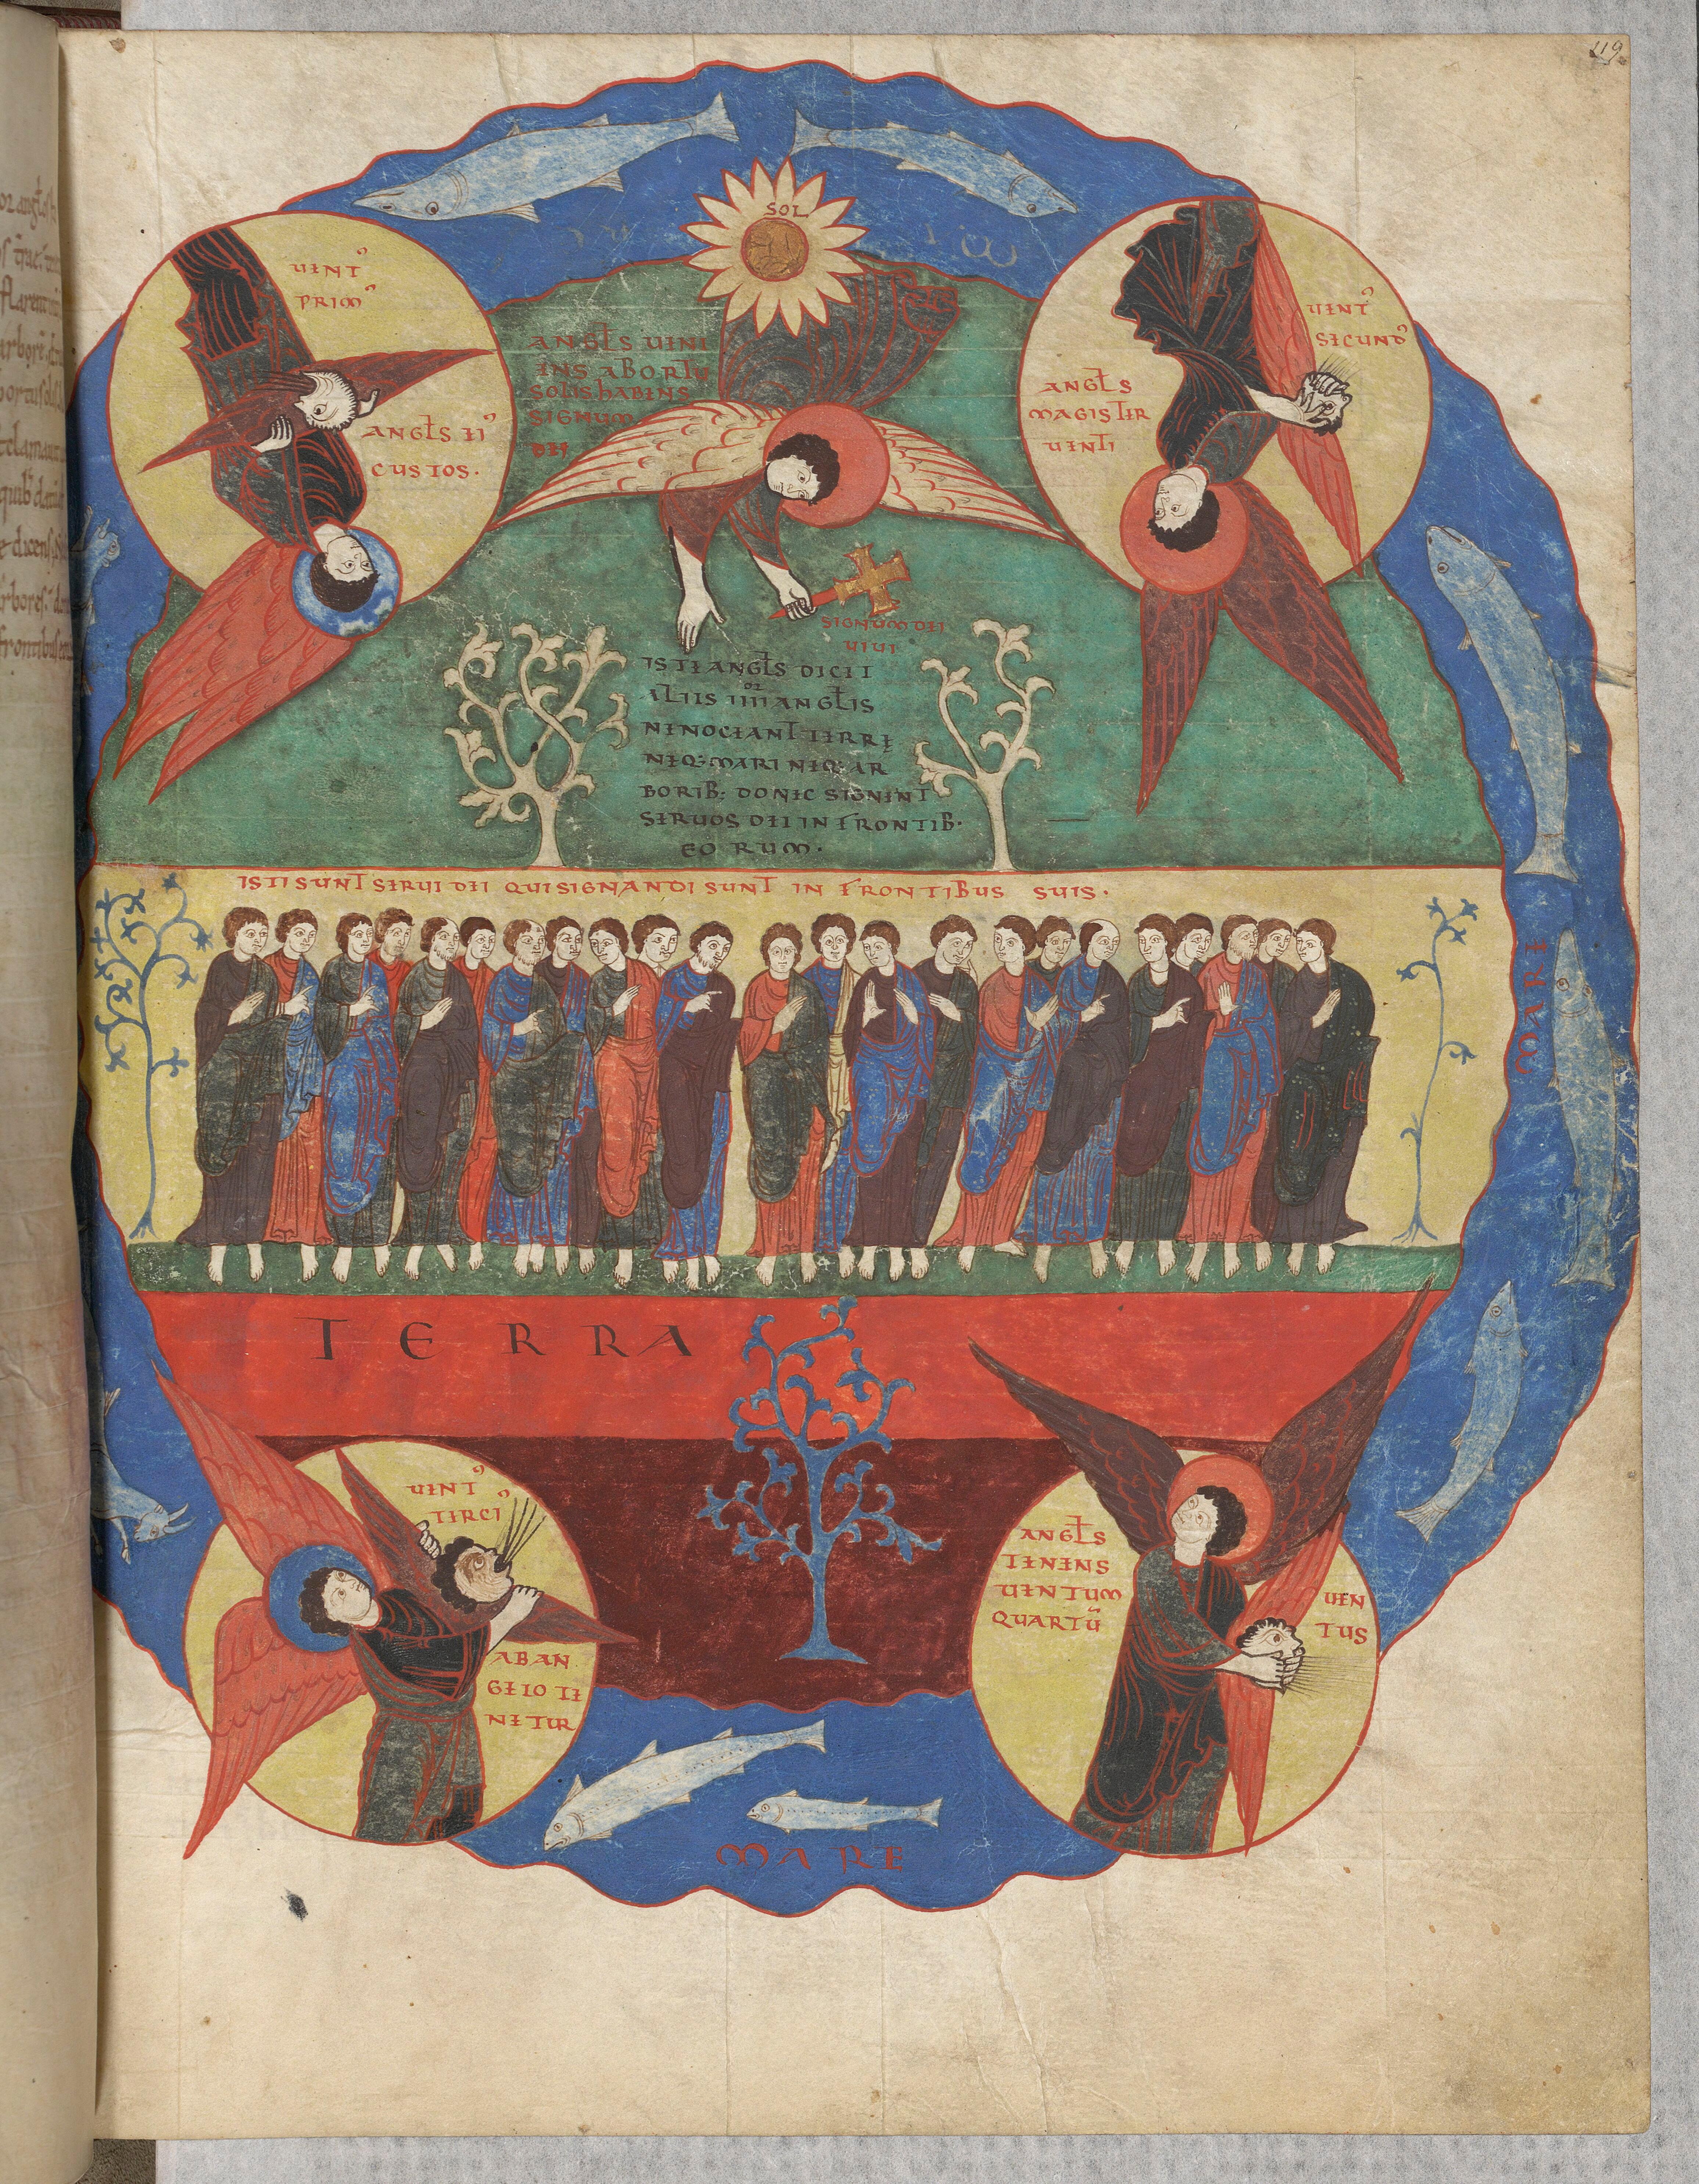 119
SOL
UENTꝰ
PRIMꝰ
ANGLS EIꝰ
CUSTOS.
ANGLS UENI
ENS AB ORTU
SOLIS HABENS
SIGNUM
DEI
UENTꝰ
SECUNDꝰ
ANGLS
MAGISTER
UENTI
SIGNUM DEI
UIUI
ISTE ANGLS DICET
ALIIS IIIIOR ANGLIS
NE NOCEANT TERRĘ
NEQ; MARI NEQ; AR
BORIB; DONEC SIGNENT
SERUOS DEI IN FRONTIB.
EORUM.
ISTI SUNT SERUI DEI QUI SIGNANDI SUNT IN FRONTIBUS SUIS.
MARE
TERRA
UENTꝰ
TERCIꝰ
AB AN
GELO TE
NETUR
ANGLS
TENENS
UENTUM
QUARTŪ
UEN
TUS
MARE